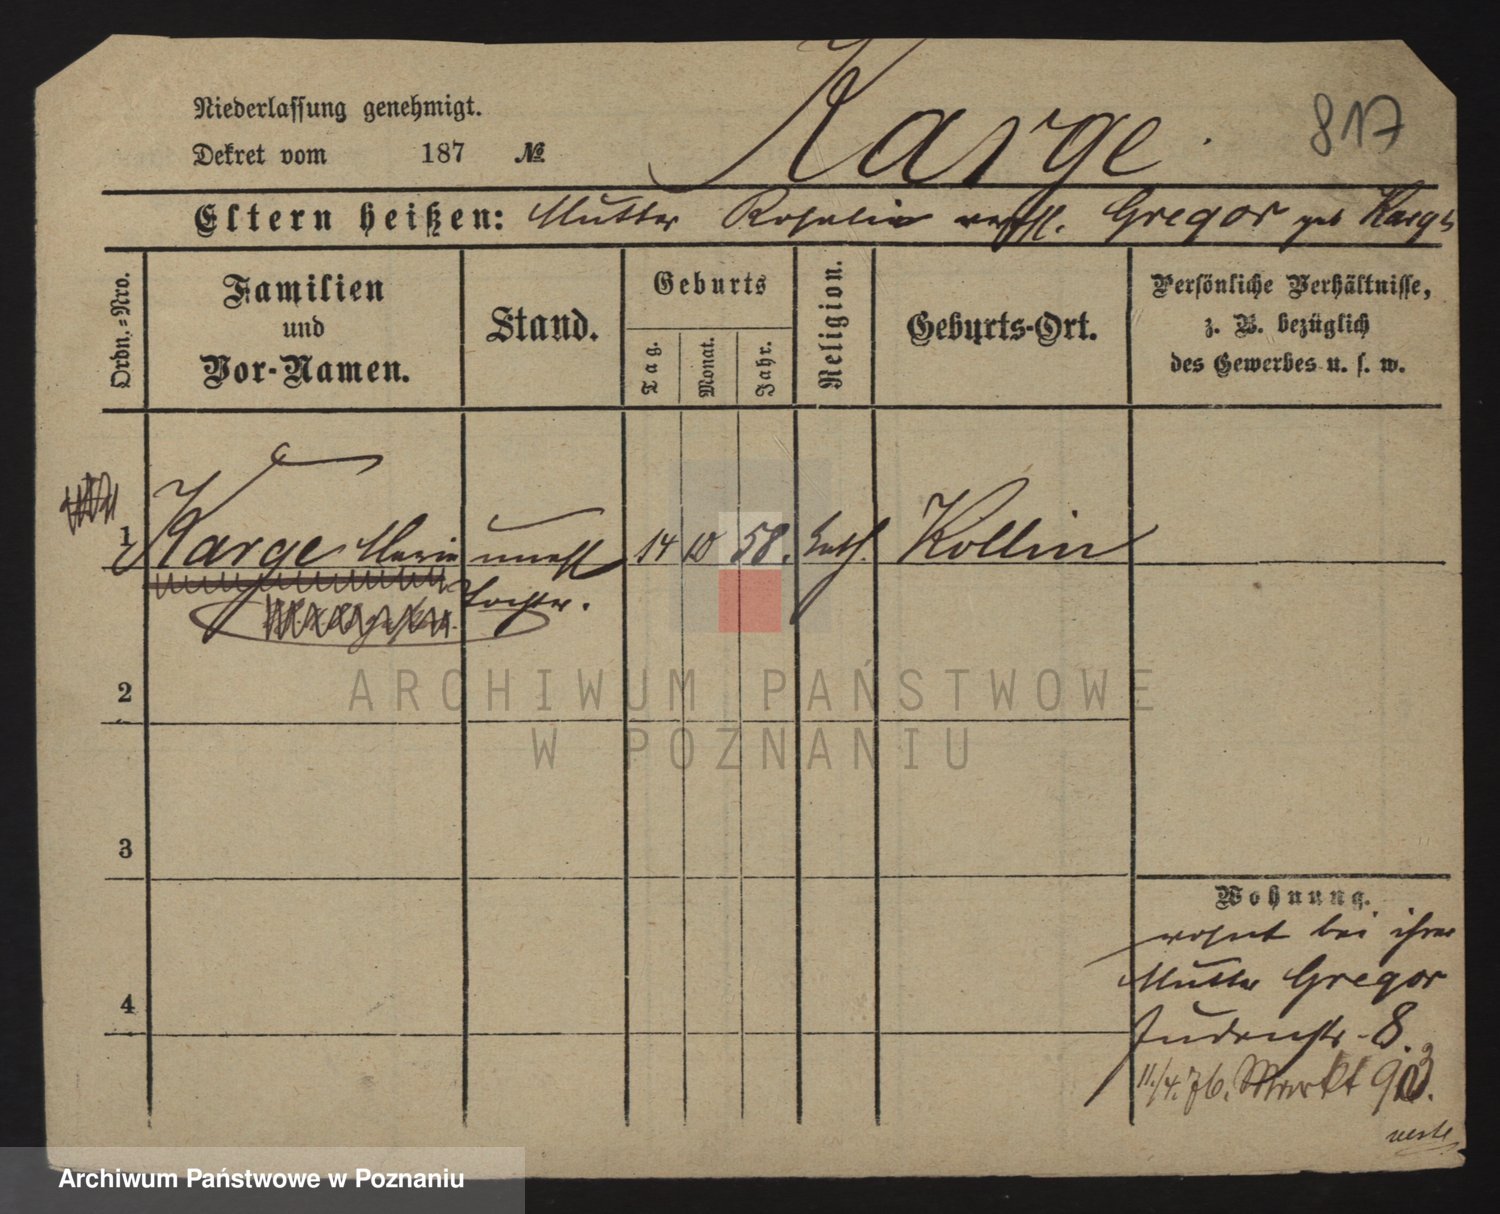 Niederlassung genehmigt.
Dekret vom 187 №
Karge.
817
Eltern heißen: Mutter Rosalie verehl. Gregor geb Karge
Ordn.-Nro.
Familien
und
Vor-Namen.
Stand.
Geburts
Tag.
Monat.
Jahr.
Religion.
Geburts-Ort.
Persönliche Verhältnisse,
z. B. bezüglich
des Gewerbes u. s. w.
1 Karge Marie unehl 14 10 58. kath. Kollin
Tochter.
2
3
4
Wohnung.
wohnt bei ihrer
Mutter Gregor
Judenstr. 8.
11./4. 76. Markt
ARCHIWUM PAŃSTWOWE
W POZNANIU
Archiwum Państwowe w Poznaniu